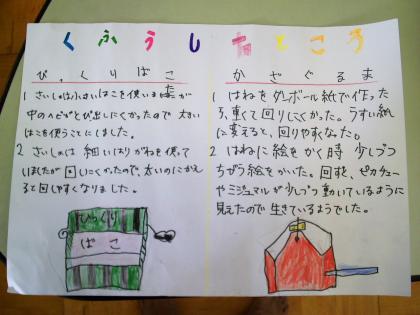 くふうしたところ
びっくりばこ
1 さいしょは小さいはこを使いましたが
中のヘビがとび出しにくかったので大きい
はこを使うことにしました。
2 さいしょは細いはりがねを使って
いましたが回しにくかったので太いのにかえ
ると回しやすくなりました。
びっくり
ばこ
かざぐるま
1 はねをダンボール紙で作った
ら、重くて回りにくかった。うすい紙
に変えると、回りやすくなった。
2 はねに絵をかく時少しづつ
ちがう絵をかいた。回すと、ピカチュー
やミジュマルが少しづつ動いているように
見えたので生きているようでした。